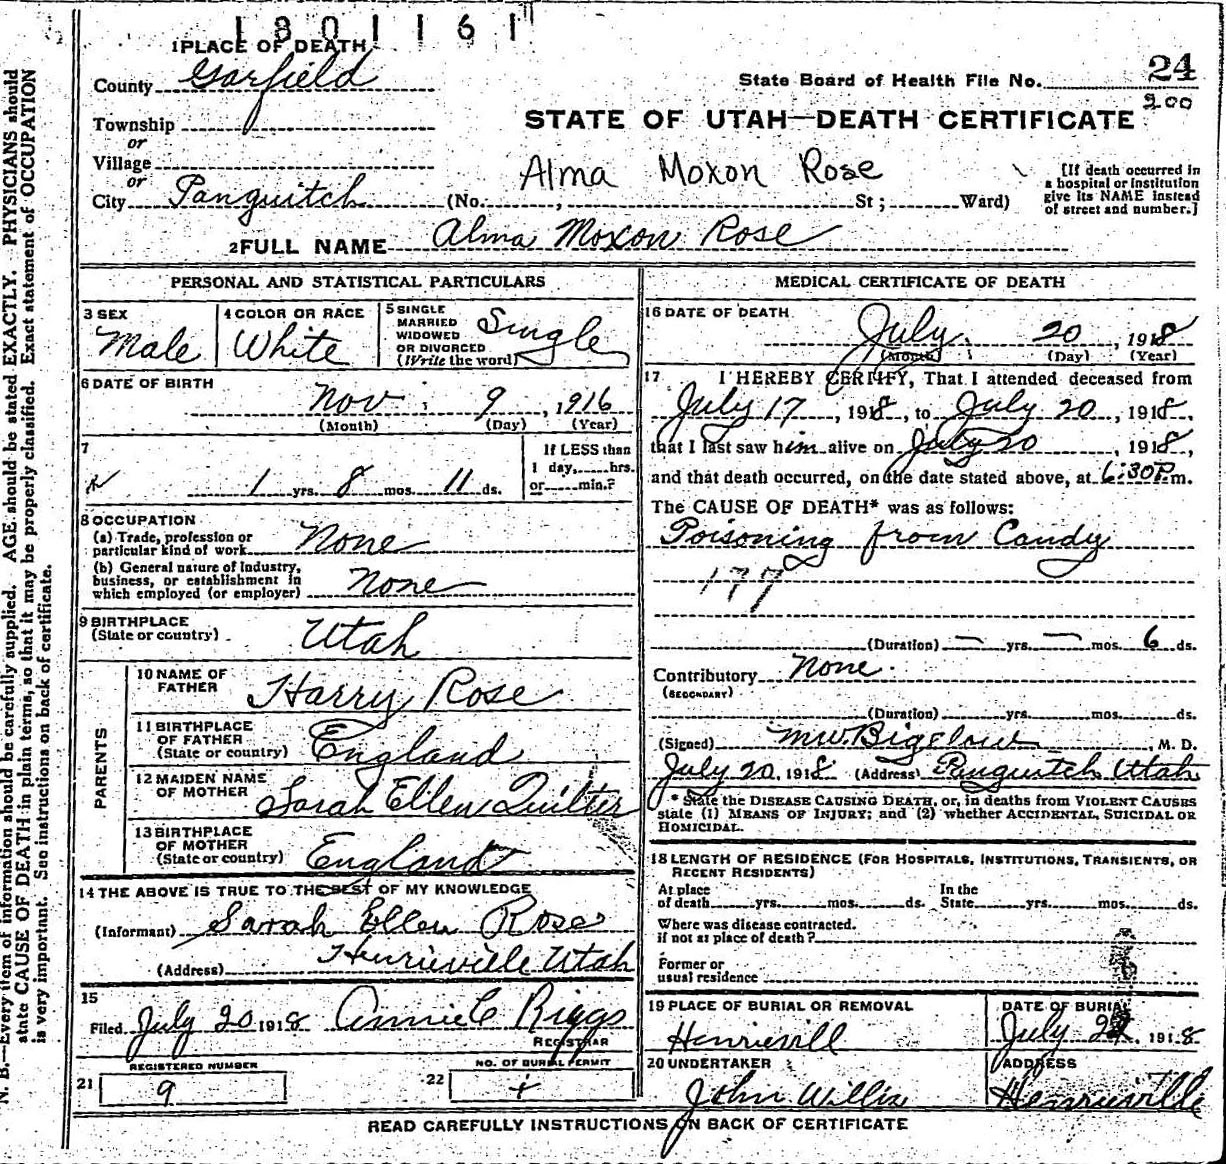 1801161
1 PLACE OF DEATH
County Garfield
State Board of Health File No. 24
200
Township
or
Village
or
City Panguitch
STATE OF UTAH—DEATH CERTIFICATE
Alma Moxon Rose
(No. , St ; Ward)
[If death occurred in
a hospital or institution
give its NAME instead
of street and number.]
2 FULL NAME Alma Moxon Rose
PERSONAL AND STATISTICAL PARTICULARS
3 SEX
Male
4 COLOR OR RACE
White
5 SINGLE
MARRIED
WIDOWED
OR DIVORCED
(Write the word)
Single
6 DATE OF BIRTH
Nov. 9, 1916
(Month) (Day) (Year)
7
1 yrs. 8 mos. 11 ds.
If LESS than
1 day, hrs.
or min.?
8 OCCUPATION
(a) Trade, profession or
particular kind of work None
(b) General nature of Industry,
business, or establishment in
which employed (or employer) None
9 BIRTHPLACE
(State or country) Utah
PARENTS
10 NAME OF
FATHER Harry Rose
11 BIRTHPLACE
OF FATHER
(State or country) England
12 MAIDEN NAME
OF MOTHER Sarah Ellen Quilter
13 BIRTHPLACE
OF MOTHER
(State or country) England
14 THE ABOVE IS TRUE TO THE BEST OF MY KNOWLEDGE
(Informant) Sarah Ellen Rose
(Address) Henrieville Utah
15
Filed July 20 1918 Annie C Riggs
REGISTRAR
REGISTERED NUMBER
21 9
NO. OF BURIAL PERMIT
22
MEDICAL CERTIFICATE OF DEATH
16 DATE OF DEATH
July 20, 1918
(Month) (Day) (Year)
17 I HEREBY CERTIFY, That I attended deceased from
July 17, 1918, to July 20, 1918,
that I last saw him alive on July 20, 1918,
and that death occurred, on the date stated above, at 6:30 P.m.
The CAUSE OF DEATH* was as follows:
Poisoning from Candy
177
(Duration) — yrs. — mos. 6 ds.
Contributory None.
(SECONDARY)
(Duration) yrs. mos. ds.
(Signed) M.W. Bigelow, M. D.
July 20, 1918 (Address) Panguitch Utah
* State the DISEASE CAUSING DEATH, or, in deaths from VIOLENT CAUSES
state (1) MEANS OF INJURY; and (2) whether ACCIDENTAL, SUICIDAL OR
HOMICIDAL.
18 LENGTH OF RESIDENCE (FOR HOSPITALS, INSTITUTIONS, TRANSIENTS, OR
RECENT RESIDENTS)
At place
of death yrs. mos. ds.
In the
State yrs. mos. ds.
Where was disease contracted,
if not at place of death?
Former or
usual residence
19 PLACE OF BURIAL OR REMOVAL
Henrievill
DATE OF BURIAL
July 1918
20 UNDERTAKER
John Willis
ADDRESS
Henrieville
READ CAREFULLY INSTRUCTIONS ON BACK OF CERTIFICATE
N. B.—Every item of information should be carefully supplied. AGE should be stated EXACTLY. PHYSICIANS should
state CAUSE OF DEATH in plain terms, so that it may be properly classified. Exact statement of OCCUPATION
is very important. See instructions on back of certificate.